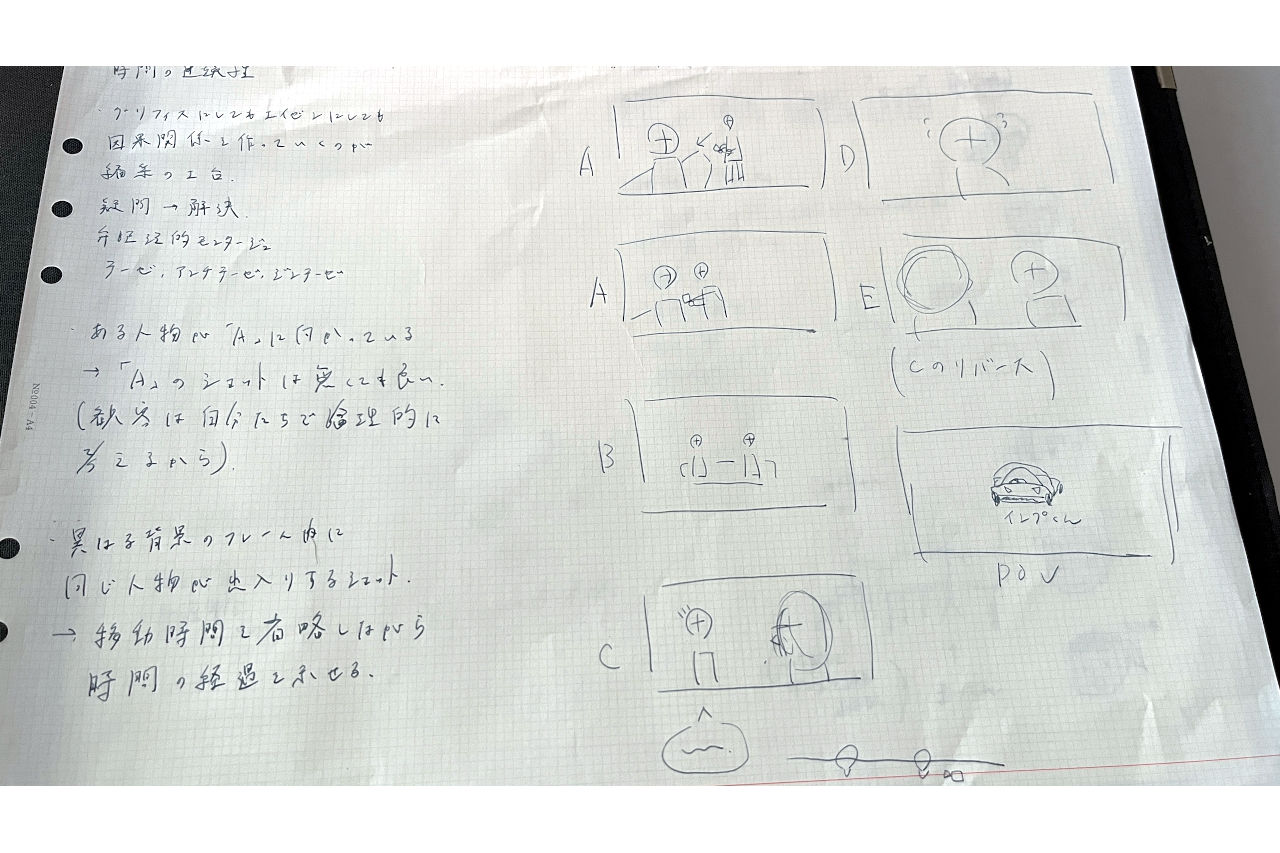 時間の連続性
・グリフィスにしてもエイゼンにしても
因果関係を作っていくのが
編集の工台.
疑問→解決
弁証法的モンタージュ
テーゼ,アンチテーゼ,ジンテーゼ
・ある人物が「A」に向かっている
→「A」のショットは無くても良い.
(観客は自分たちで論理的に
考えるから).
・異なる背景のフレーム内に
同じ人物が出入りするショット.
→移動時間を省略しながら
時間の経過を示せる.
No.004-A4
A
A
B
C
D
E
(Cのリバース)
インプくん
POV